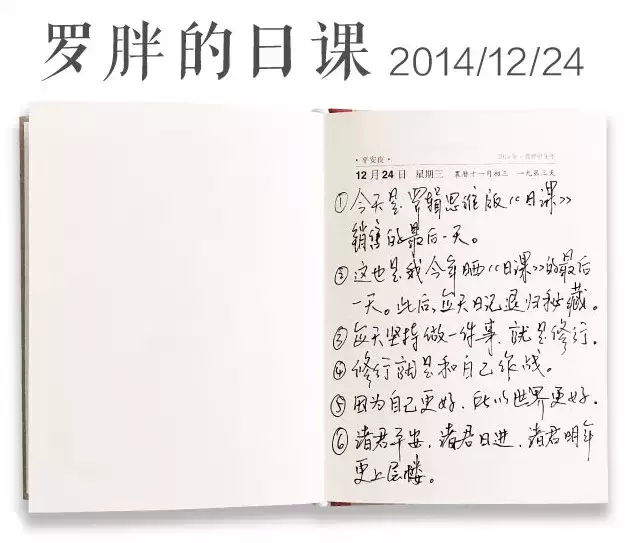 罗胖的日课 2014/12/24
·平安夜·
12月24日 星期三 农历十一月初三 一九第三天
①今天是罗辑思维版《日课》
销售的最后一天。
②这也是我今年晒《日课》的最后
一天。此后,每天日记退归秘藏。
③每天坚持做一件事,就是修行.
④修行就是和自己作战。
⑤因为自己更好,所以世界更好.
⑥诸君平安,诸君日进,诸君明年
更上层楼。